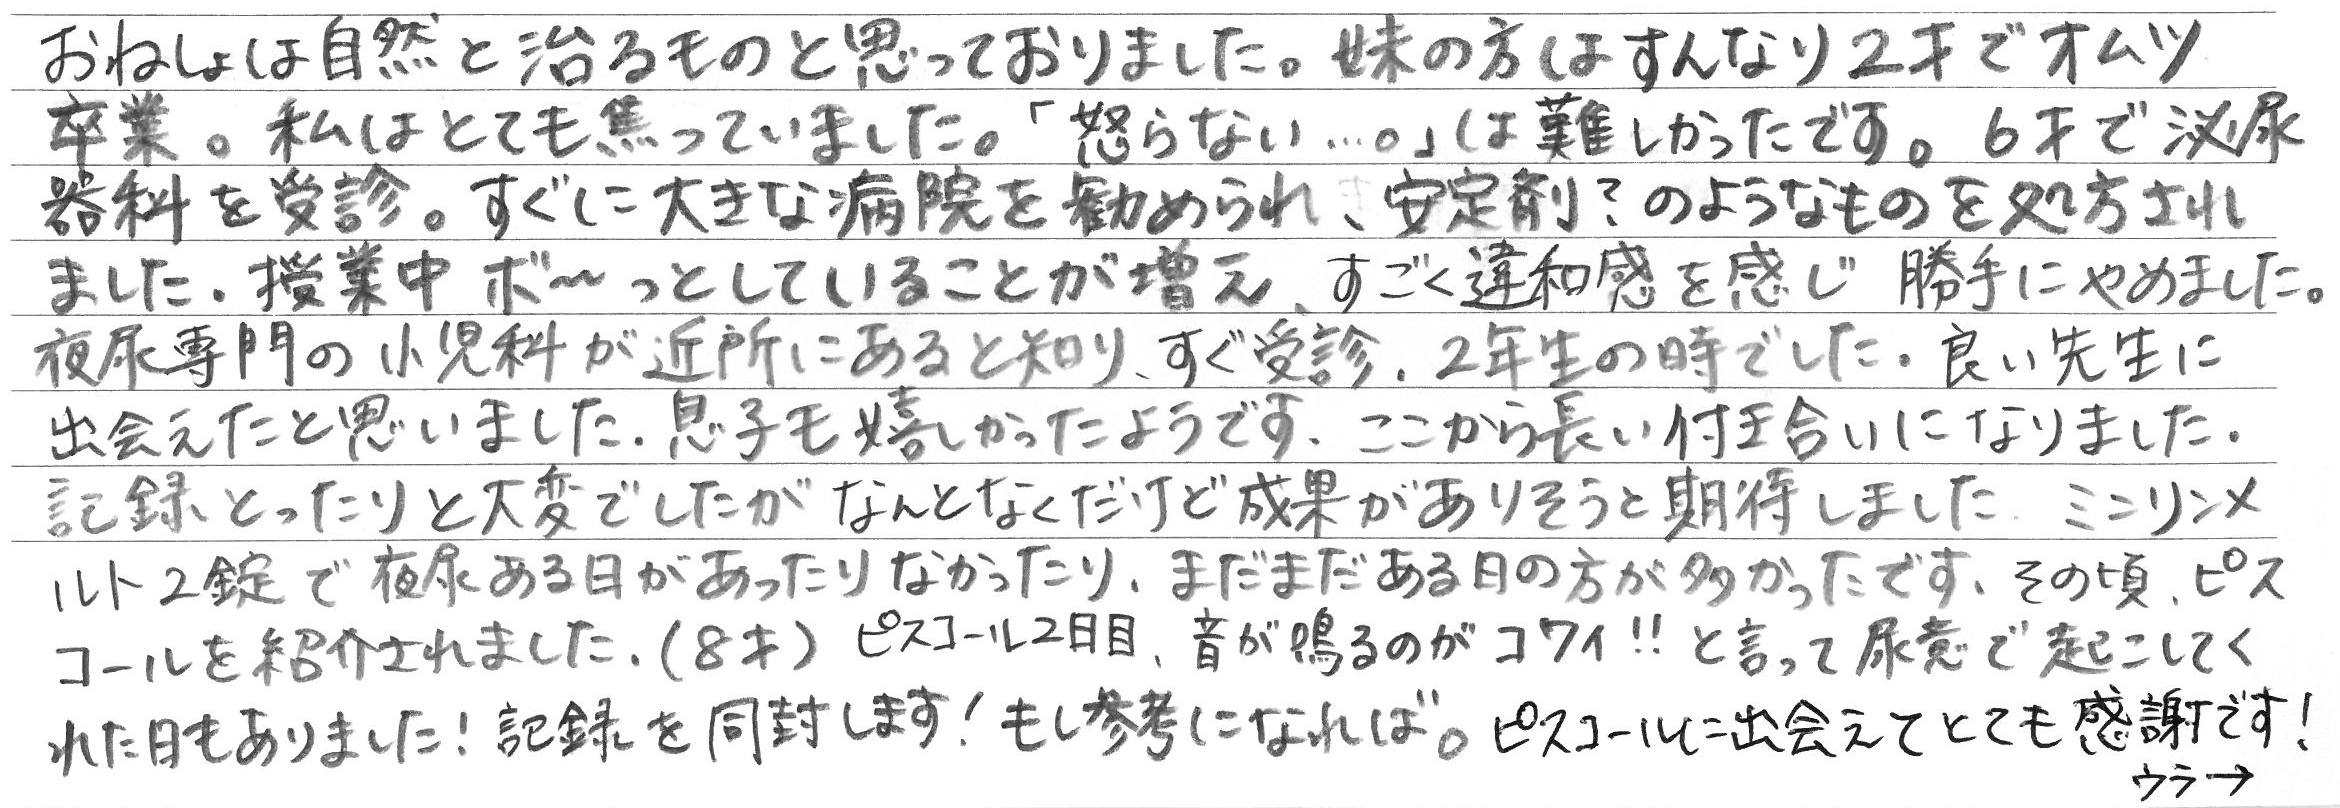 おねしょは自然と治るものと思っておりました。妹の方はすんなり2才でオムツ
卒業。私はとても焦っていました。「怒らない…。」は難しかったです。6才で泌尿
器科を受診。すぐに大きな病院を勧められ、安定剤?のようなものを処方され
ました.授業中ボ〜っとしていることが増え、すごく違和感を感じ 勝手にやめました。
夜尿専門の小児科が近所にあると知り、すぐ受診.2年生の時でした.良い先生に
出会えたと思いました.息子も嬉しかったようです.ここから長い付き合いになりました.
記録とったりと大変でしたがなんとなくだけど成果がありそうと期待しました.ミニリンメ
ルト2錠で夜尿ある日があったりなかったり.まだまだある日の方が多かったです.その頃、ピス
コールを紹介されました.(8才) ピスコール2日目、音が鳴るのがコワイ!!と言って尿意で起こしてく
れた日もありました!記録を同封します!もし参考になれば。ピスコールに出会えてとても感謝です!
ウラ→